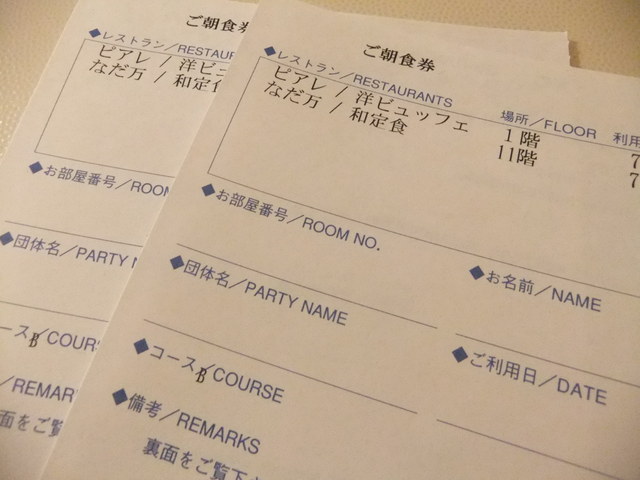 ご朝食券
◆レストラン／RESTAURANTS 場所／FLOOR 利用
ピアレ / 洋ビュッフェ 1階 7
なだ万 / 和定食 11階 7
◆お部屋番号／ROOM NO.
◆お名前／NAME
◆団体名／PARTY NAME
◆ご利用日／DATE
◆コース／COURSE
B
◆備考／REMARKS
裏面をご覧下
ご朝食券
◆レストラン／RESTAUR
ピアレ / 洋ビ
なだ万 / 和定
◆お部屋番号／ROOM
◆団体名／PARTY N
ース／COURS
B
／REMAR
面をご覧